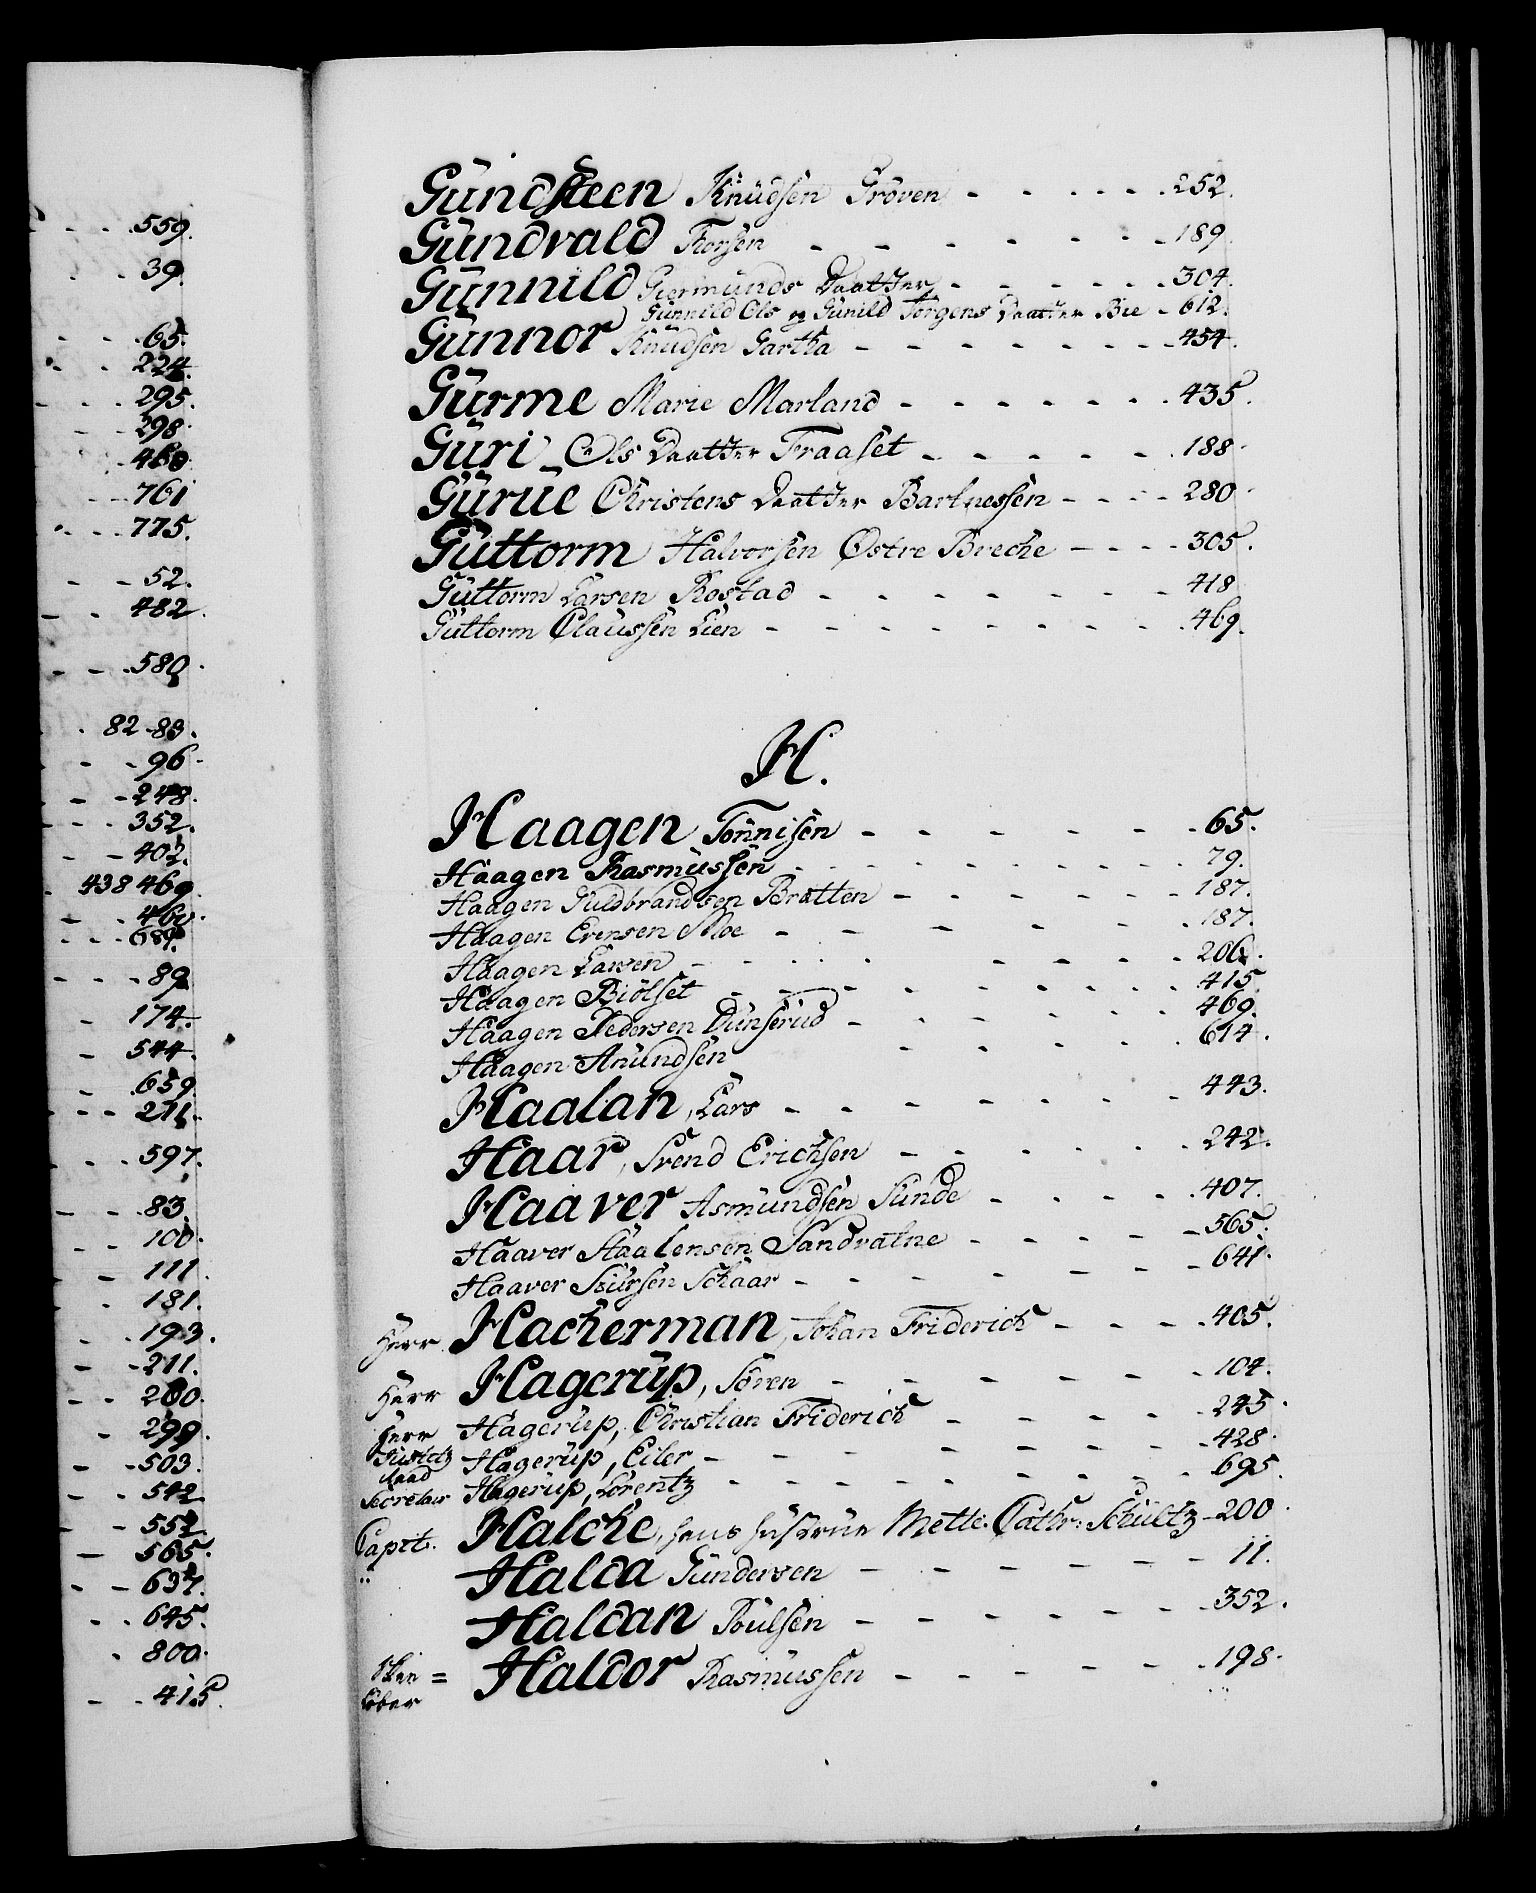 559.
39.
65.
224.
295.
298.
460.
761
775.
52.
482.
580.
82-83.
96.
248.
352.
402.
438 469.
460.
689.
89.
174.
544.
659.
271.
597.
83.
100.
111.
181.
193.
211.
200.
299.
503.
542.
552.
565.
637.
645.
800.
415.
Gündsteen Knüdsen Gröven - - - - - - 252.
Gündvald Thorsen - - - - - - - 189.
Günnild Giermünds Daatter - - - - - - 304.
Günnild Ols og Günild Torgens Daatter Bie - 612.
Günnor Knüdsen Gartha - - - - - - - - 454.
Gürme Marie Marland - - - - - - - 435.
Güri Ols Daatter Fraaset - - - - - - 188.
Gürüe Christens Daatter Bartnessen - - - - 280.
Güttorm Halvorsen Østre Breche - - - - 305.
Güttorm Larsen Rostad - - - - - - - 418.
Güttorm Claussen Lien - - - - - - - - - 469.
H.
Haagen Tönnisen - - - - - - 65.
Haagen Rasmüssen - - - - - - - - 79.
Haagen Guldbrandsen Bratten - - - - - - 187.
Haagen Evensen Moe - - - - - - 187.
Haagen Larsen - - - - - - - - 206.
Haagen Biölset - - - - - - - - - 415.
Haagen Pedersen Dünserüd - - - - - - 469.
Haagen Anündsen - - - - - 614.
Haalan, Lars - - - - - - - 443.
Haar, Svend Erichsen - - - - - - 242.
Haaver Asmündsen Sünde - - - - 407.
Haaver Staalensen Sandvatne - - - - - 565.
Haaver Siürsen Schaar - - - - - - - 641.
Herr Hacherman, Johan Friderich - - - - 405.
Herr Hagerüp, Sören - - - - - - 104.
Herr Hagerüp, Christian Friderich - - - - - 245.
Justitz Raad Hagerüp, Eiler - - - - - - - - 428.
Secretair Hagerüp, Lorentz - - - - - - - - 695.
Capit. Halche, hans hustrüe Mette Cathr: Schültz - 200.
Halda Gündersen - - - - - - 11.
Haldan Poulsen - - - - - - 352.
Skee = Löber Haldor Rasmüssen - - - - - - 198.